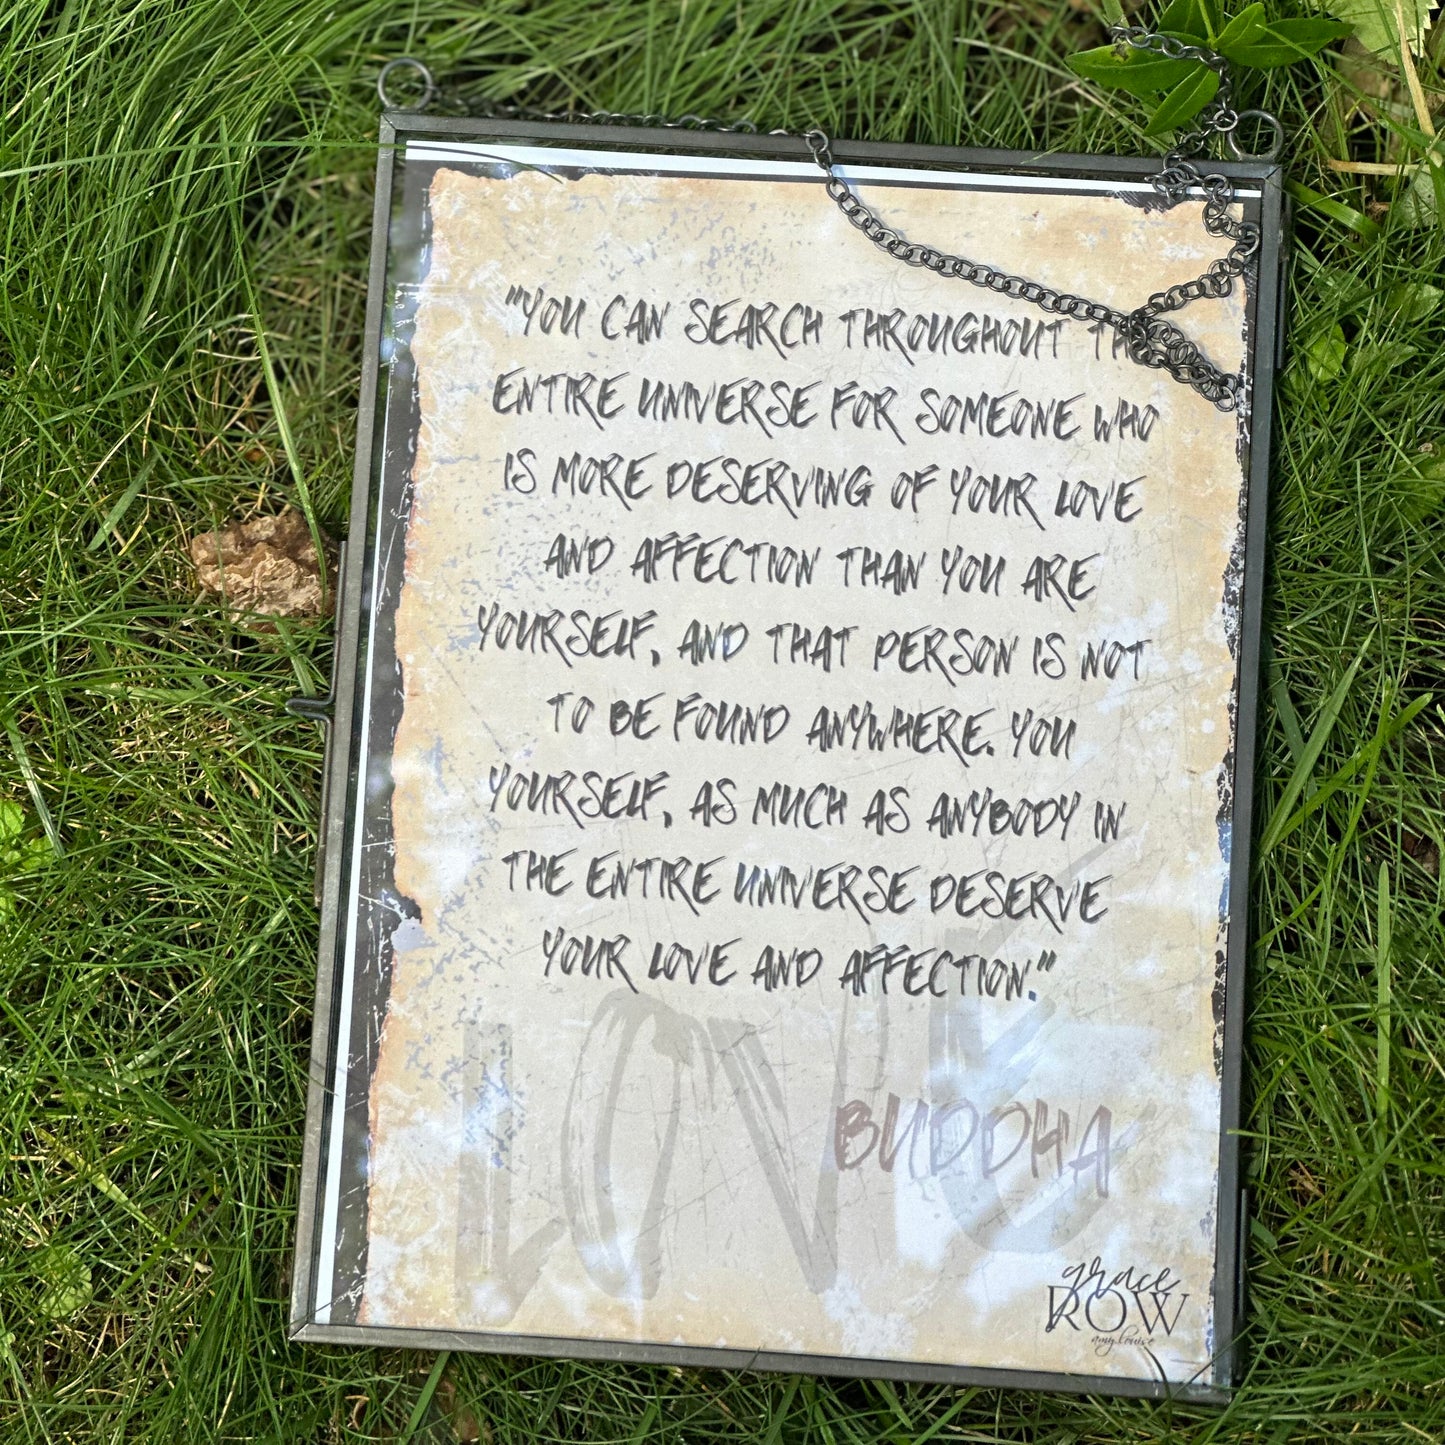 "YOU CAN SEARCH THROUGHOUT THE
ENTIRE UNIVERSE FOR SOMEONE WHO
IS MORE DESERVING OF YOUR LOVE
AND AFFECTION THAN YOU ARE
YOURSELF, AND THAT PERSON IS NOT
TO BE FOUND ANYWHERE. YOU
YOURSELF, AS MUCH AS ANYBODY IN
THE ENTIRE UNIVERSE DESERVE
YOUR LOVE AND AFFECTION."
LOVE
BUDDHA
grace
ROW
amy louise